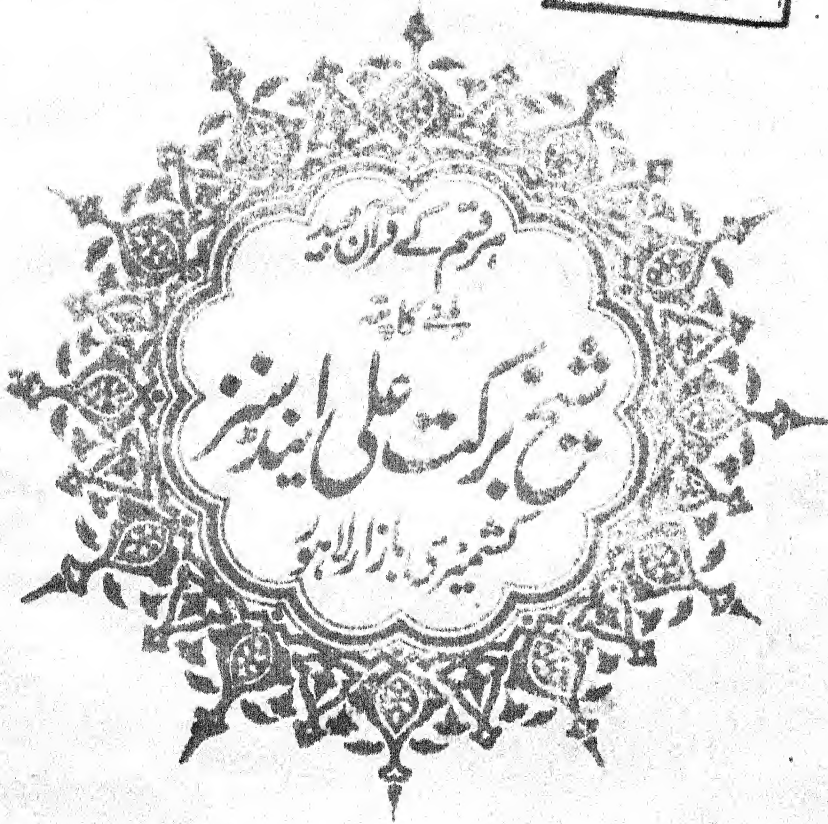 ہر قسم کے قرآن مجید
ملنے کا پتہ
شیخ برکت علی اینڈ سنز
کشمیری بازار لاہور